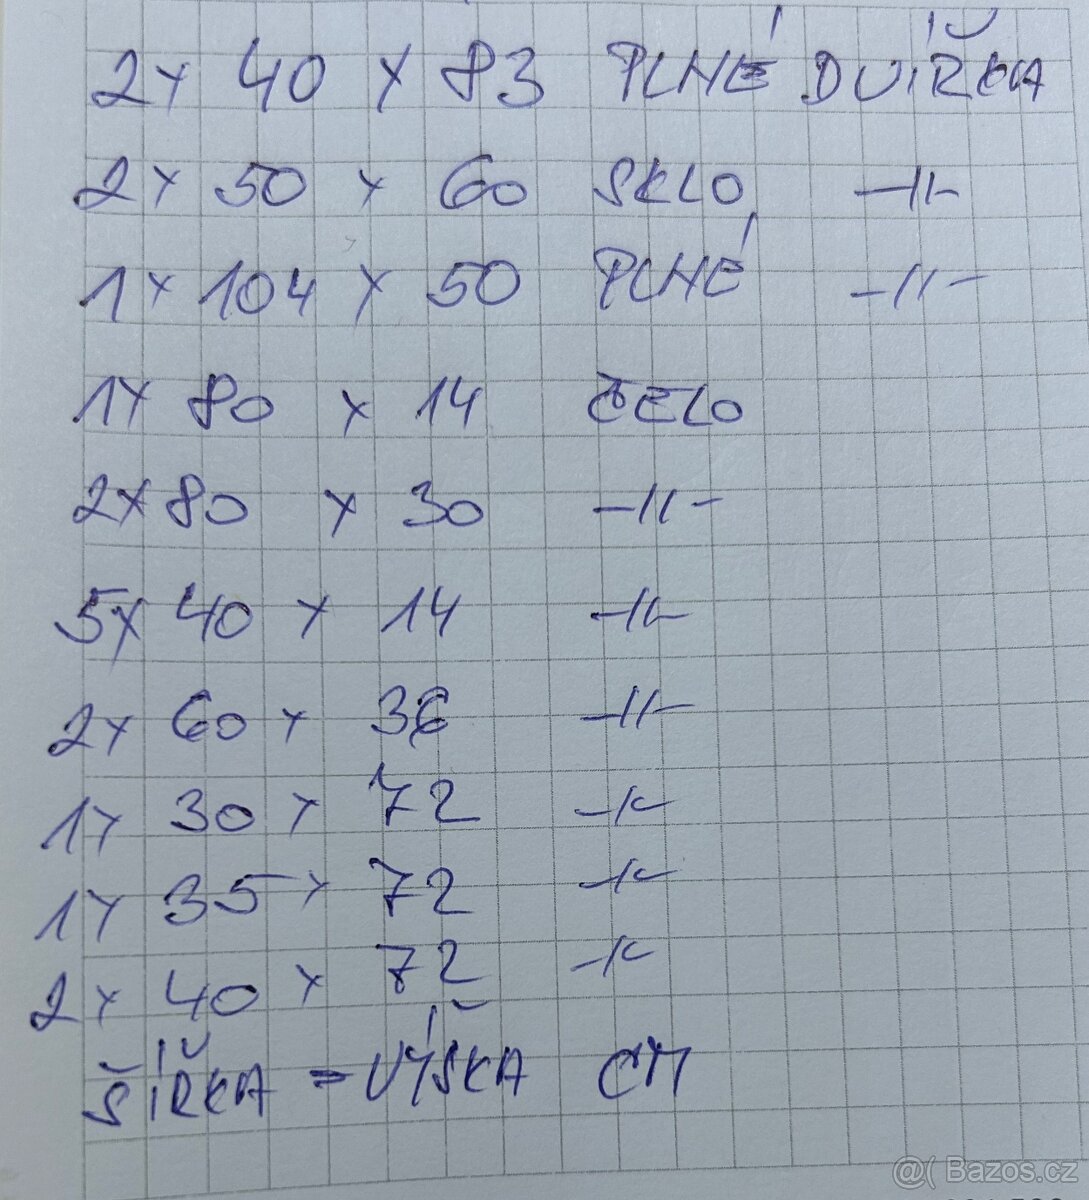 2x 40 x 83 PLNÉ DVÍŘKA
2x 50 x 60 SKLO -||-
1x 104 x 50 PLNÉ -||-
1x 80 x 14 ČELO
2x 80 x 30 -||-
5x 40 x 14 -||-
2x 60 x 36 -||-
1x 30 x 72 -||-
1x 35 x 72 -||-
2x 40 x 72 -||-
ŠÍŘKA - VÝŠKA CM
@( Bazos.cz